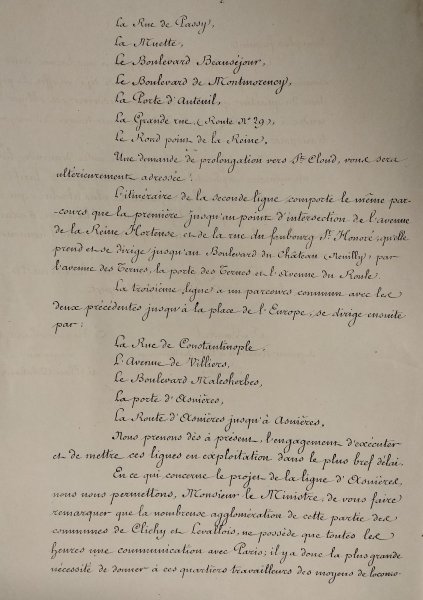 La Rue de Passy,
La Muette,
Le Boulevard Beauséjour,
Le Boulevard de Montmorency,
La Porte d'Auteuil,
La Grande rue (Route Nº 29),
Le Rond point de la Reine.
Une demande de prolongation vers St Cloud, vous sera
ultérieurement adressée.
L'itinéraire de la seconde ligne comporte le même par-
-cours que la première jusqu'au point d'intersection de l'avenue
de la Reine Hortense et de la rue du faubourg St Honoré qu'elle
prend et se dirige jusqu'au Boulevard du Château (Neuilly) par
l'avenue des Ternes, la porte des Ternes et l'Avenue du Roule.
La troisième ligne a un parcours commun avec les
deux précédentes jusqu'à la place de l'Europe, se dirige ensuite
par :
La Rue de Constantinople,
L'Avenue de Villiers,
Le Boulevard Malesherbes,
La porte d'Asnières,
La Route d'Asnières jusqu'à Asnières.
Nous prenons dès à présent, l'engagement d'exécuter
et de mettre ces lignes en exploitation dans le plus bref délai.
En ce qui concerne le projet de la ligne d'Asnières,
nous nous permettons, Monsieur le Ministre, de vous faire
remarquer que la nombreuse agglomération de cette partie des
communes de Clichy et Levallois, ne possède que toutes les
heures une communication avec Paris; il y a donc la plus grande
nécessité de donner à ces quartiers travailleurs des moyens de locomo-